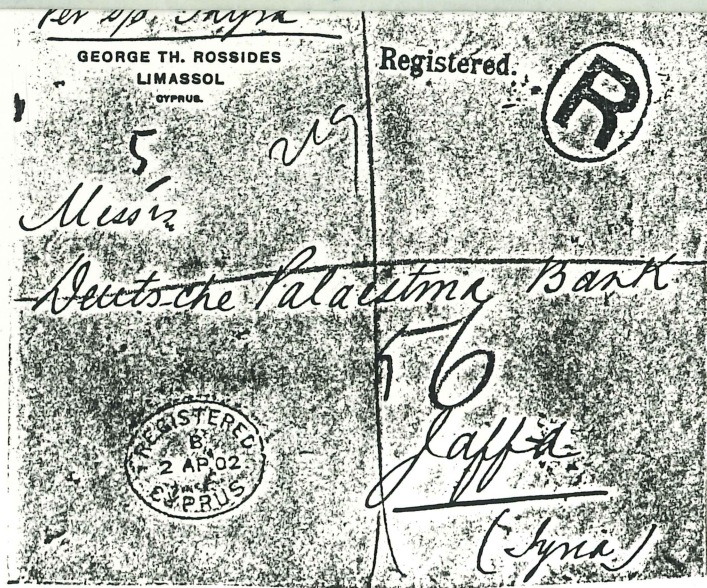 Per S/S
GEORGE TH. ROSSIDES
LIMASSOL
CYPRUS.
Registered.
R
5
Messrs
Deutsche Palaestina Bank
56
Jaffa
(Syria)
REGISTERED
B
2 AP 02
CYPRUS